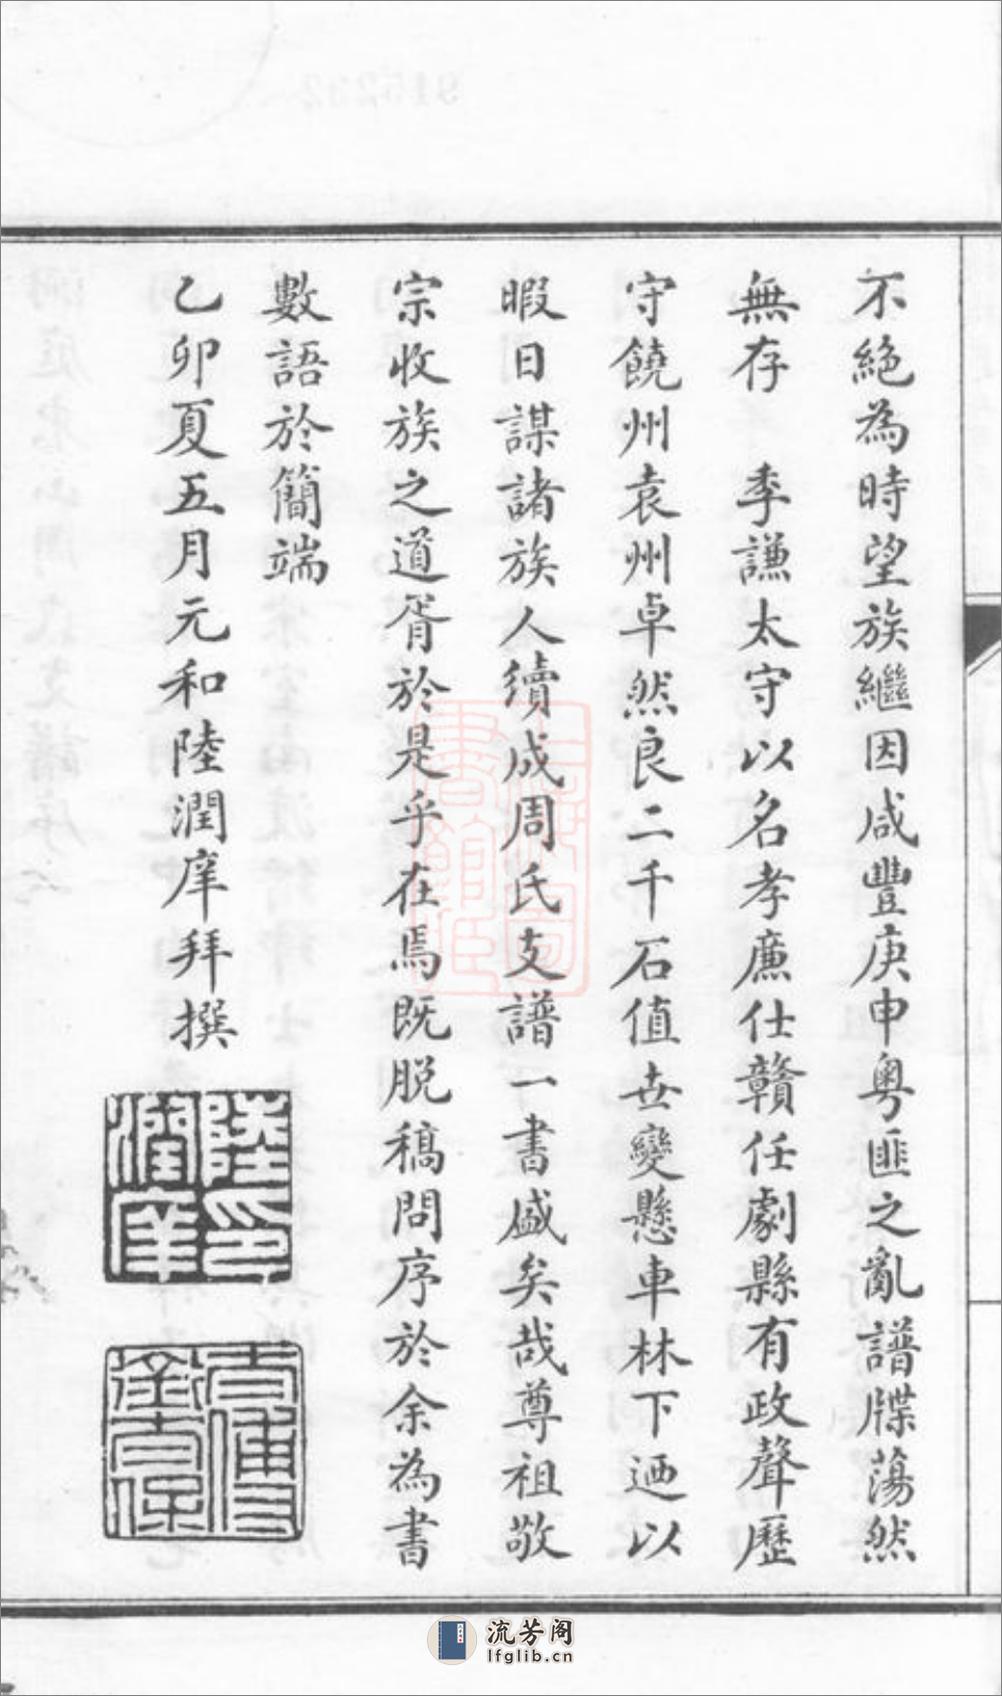 不絕為時望族繼因咸豐庚申粵匪之亂譜牒蕩然
無存 季謙太守以名孝廉仕贛任劇縣有政聲歷
守饒州袁州卓然良二千石值世變懸車林下迺以
暇日謀諸族人續成周氏支譜一書盛矣哉尊祖敬
宗收族之道胥於是乎在焉既脫稿問序於余為書
數語於簡端
乙卯夏五月元和陸潤庠拜撰
陸潤庠印
流芳阁
lfglib.cn